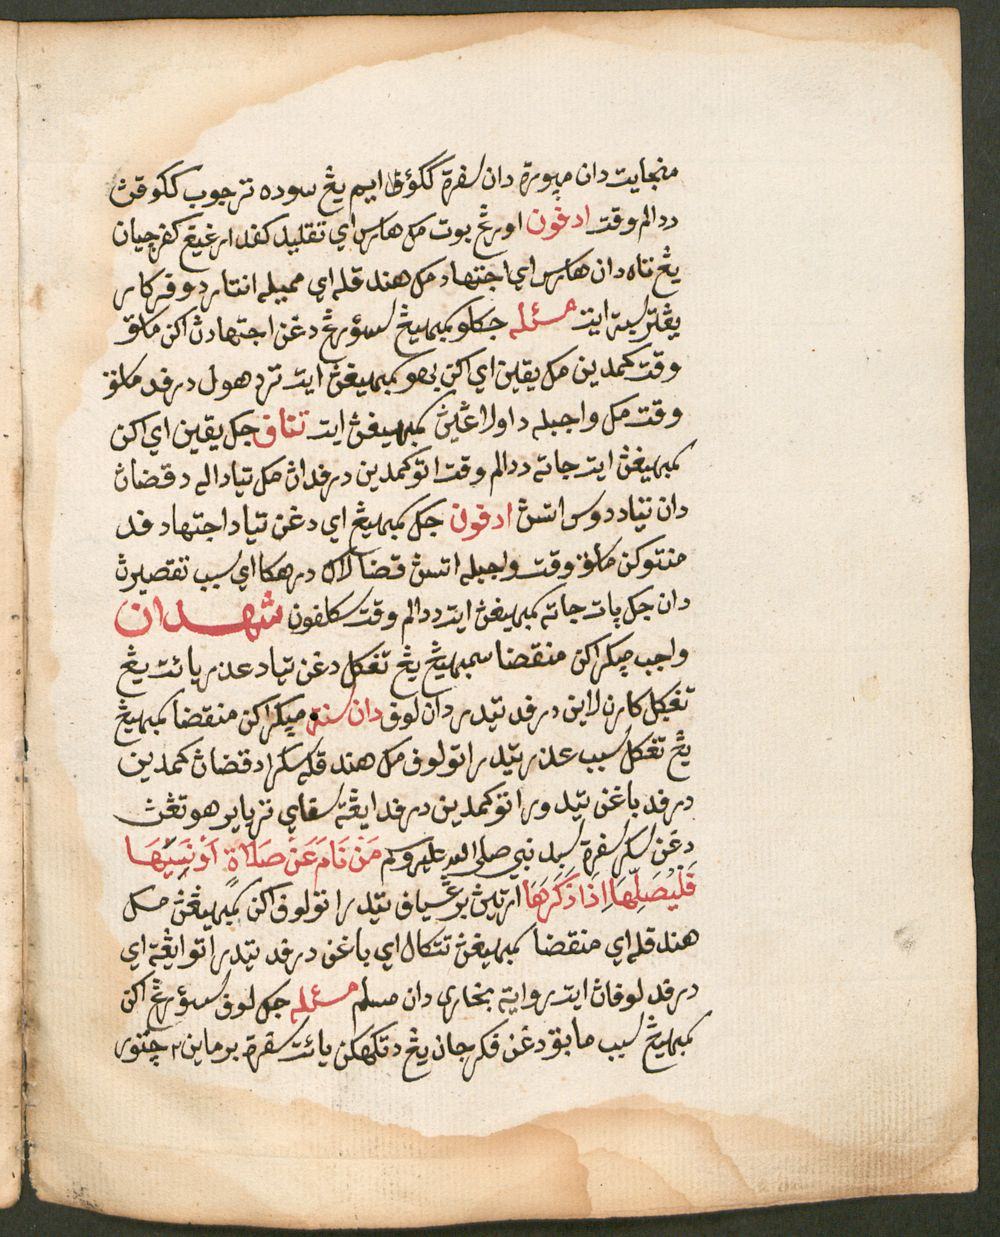 منجايت دان مپورة دان سفرة ككؤڤ ايم يڠ سوده ترجوب ككوقتن
ددالم وقت ادفون اورڠ بوت مك هارس اي تقليد كفد اورغيڠ كفرچيان
يڠ تاه دان هارس اي اجتهاد مك هندقله اي مميله انتار دوفركار
يڠترسبة ايت مسئله جكلو كمبهيڠ سؤرڠ دغن اجتهادث اكن ماسق
وقت كمدين مك يقين اي اكن بهو كمبهيغن ايت تردهول درفد ماسق
وقت مك واجبله داولاغين كمبهيغن ايت تتاف جك يقين اي اكن
كمبهيغن ايت جاته ددالم وقت اتو كمدين درفدان مك تياداله دقضان
دان تياد دوس اتسن ادفون جك كمبهيڠ اي دغن تياد اجتهاد فد
منتوكن ماسق وقت واجبله اتسن قضا لاك درهكا اي سبب تقصيرن
دان جك پات جاته كمبهيغن ايت ددالم وقت سكلفون شهدان
واجب چيكراكن منقضا سمبهيڠ يڠ تڠكل دغن تياد عذر يائت يڠ
تڠكل كارن لاين درفد تيدر دان لوف دان سنة ميكراكن منقضا كمبهيڠ
يڠ تڠكل سبب عذر تيدر اتو لوف مك هندقله سكرا دقضان كمدين
درفد باغن تيدور اتو كمدين درفد ايڠة سفاي ترباير هوتڠث
دغن سكر سفرة سبد نبي صلى الله عليه وسلم مَنْ نَامَ عَنْ صَلَاةٍ أَوْ نَسِيَهَا
فَلْيُصَلِّهَا إِذَا ذَكَرَهَا ارتين برڠسياف تيدر اتو لوف اكن كمبهيڠن مك
هندقله اي منقضا كمبهيغن تتكال اي باغن درفد تيدر اتو ايڠة اي
درفد لوفان ايت رواية بخاري دان مسلم مسئله جك لوف سؤرڠ اكن
كمبهيڠ سبب مابق دغن فكرجان يڠ دتكهكن يائت سفرة برماين٢ چتور